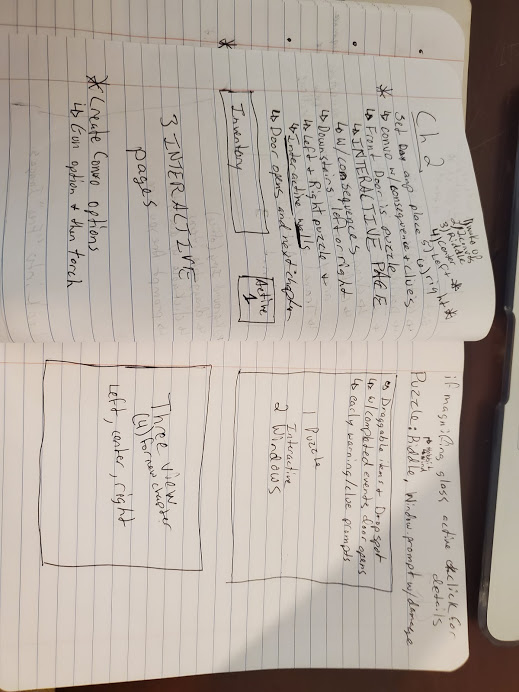 Ch 2
Set Day and place
* ↳ convo w/consequence + clues
↳ Front Door is puzzle
↳ INTERACTIVE PAGE
↳ w/consequences
↳ Downstairs left or right
↳ Left + Right puzzle +
↳ Interactive walls
↳ Door opens and next chapter
Inventory
Active
1
3 INTERACTIVE
pages
* Create Convo options
↳ Gun option + then torch
if magnifying glass active + click for
details
Puzzle: Riddle, Window prompt w/damage
↳ Draggable items + Drop spot
↳ w/completed events door opens
↳ early warning/clue prompts
1 Puzzle
2 Interactive
Windows
Three view
(4) for new chapter
Left, center, right